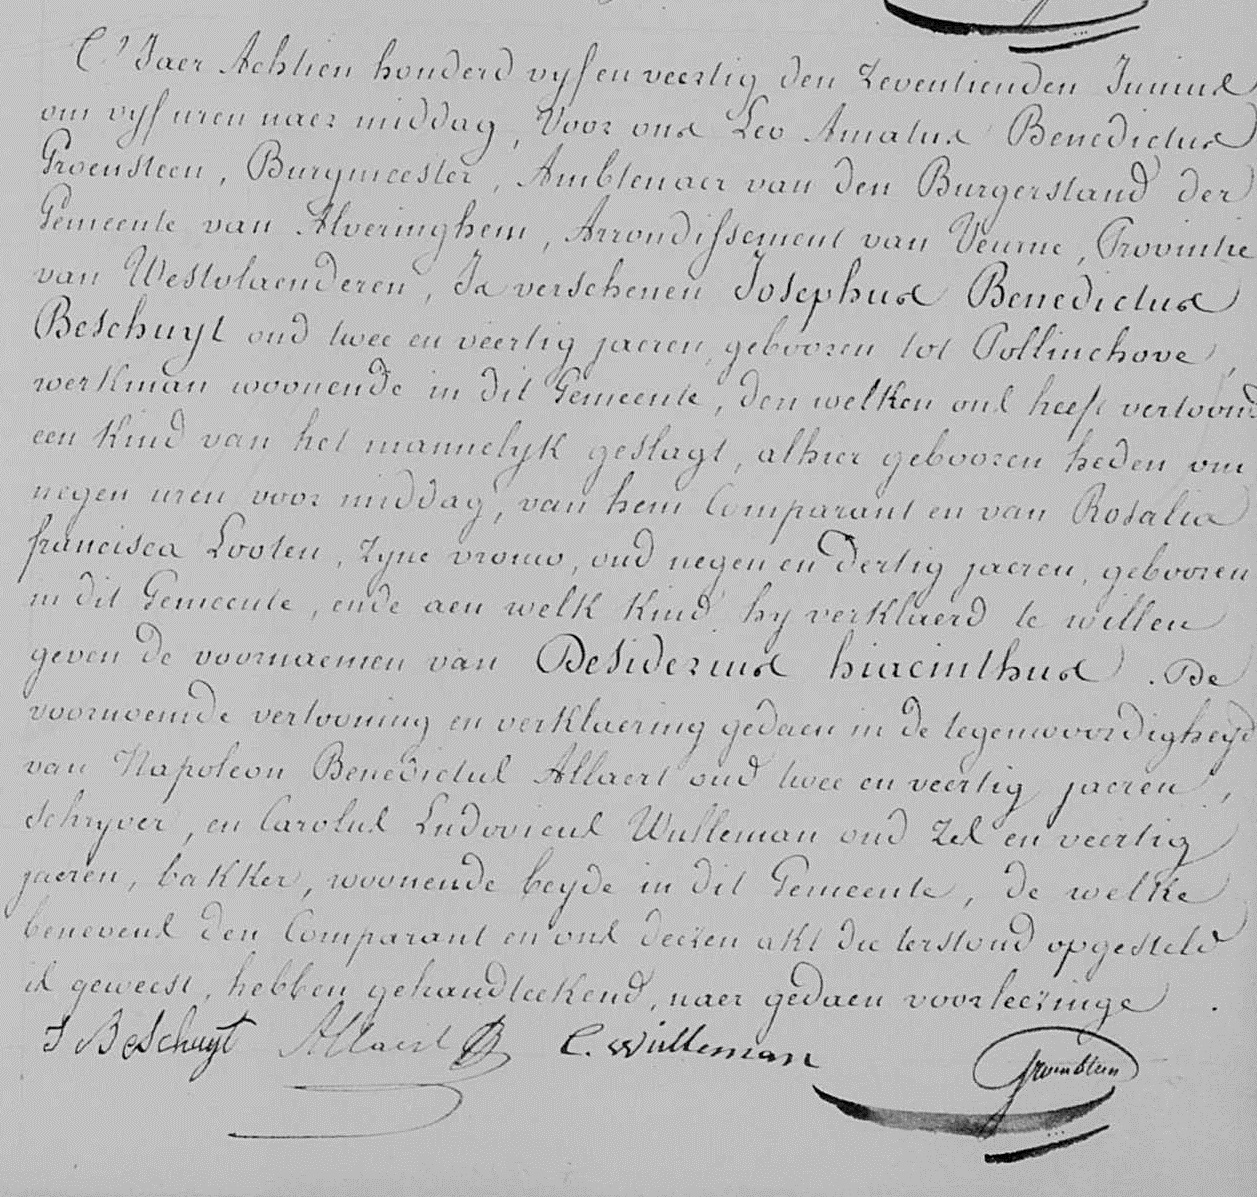 T'Jaer Achtien honderd vyf en veertig den Zeventienden Junius
om vyf uren naer middag, Voor ons Leo Amatus Benedictus
Groensteen, Burgmeester, Ambtenaer van den Burgerstand der
Gemeente van Alveringhem, Arrondissement van Veurne, Provintie
van Westvlaenderen, Is verschenen Josephus Benedictus
Beschuyt oud twee en veertig jaeren, gebooren tot Pollinchove,
werkman woonende in dit Gemeente, den welken ons heeft vertoond
een kind van het mannelyk geslagt, alhier gebooren heden om
negen uren voor middag, van hem Comparant en van Rosalia
francisca Looten, Zyne vrouw, oud negen en dertig jaeren, gebooren
in dit Gemeente, ende aen welk kind hy verklaerd te willen
geven de voornaemen van Desiderius hiacinthus. De
voornoemde vertooning en verklaering gedaen in de tegenwoordigheyd
van Napoleon Benedictus Allaert oud twee en veertig jaeren,
schryver, en Carolus Ludovicus Wulleman oud Zes en veertig
jaeren, bakker, woonende beyde in dit Gemeente, de welke
benevens den Comparant en ons deezen akt die terstond opgesteld
is geweest, hebben gehandteekend, naer gedaen voorleezinge.
J BeSchuyt Allaert B C. Wulleman Groensteen